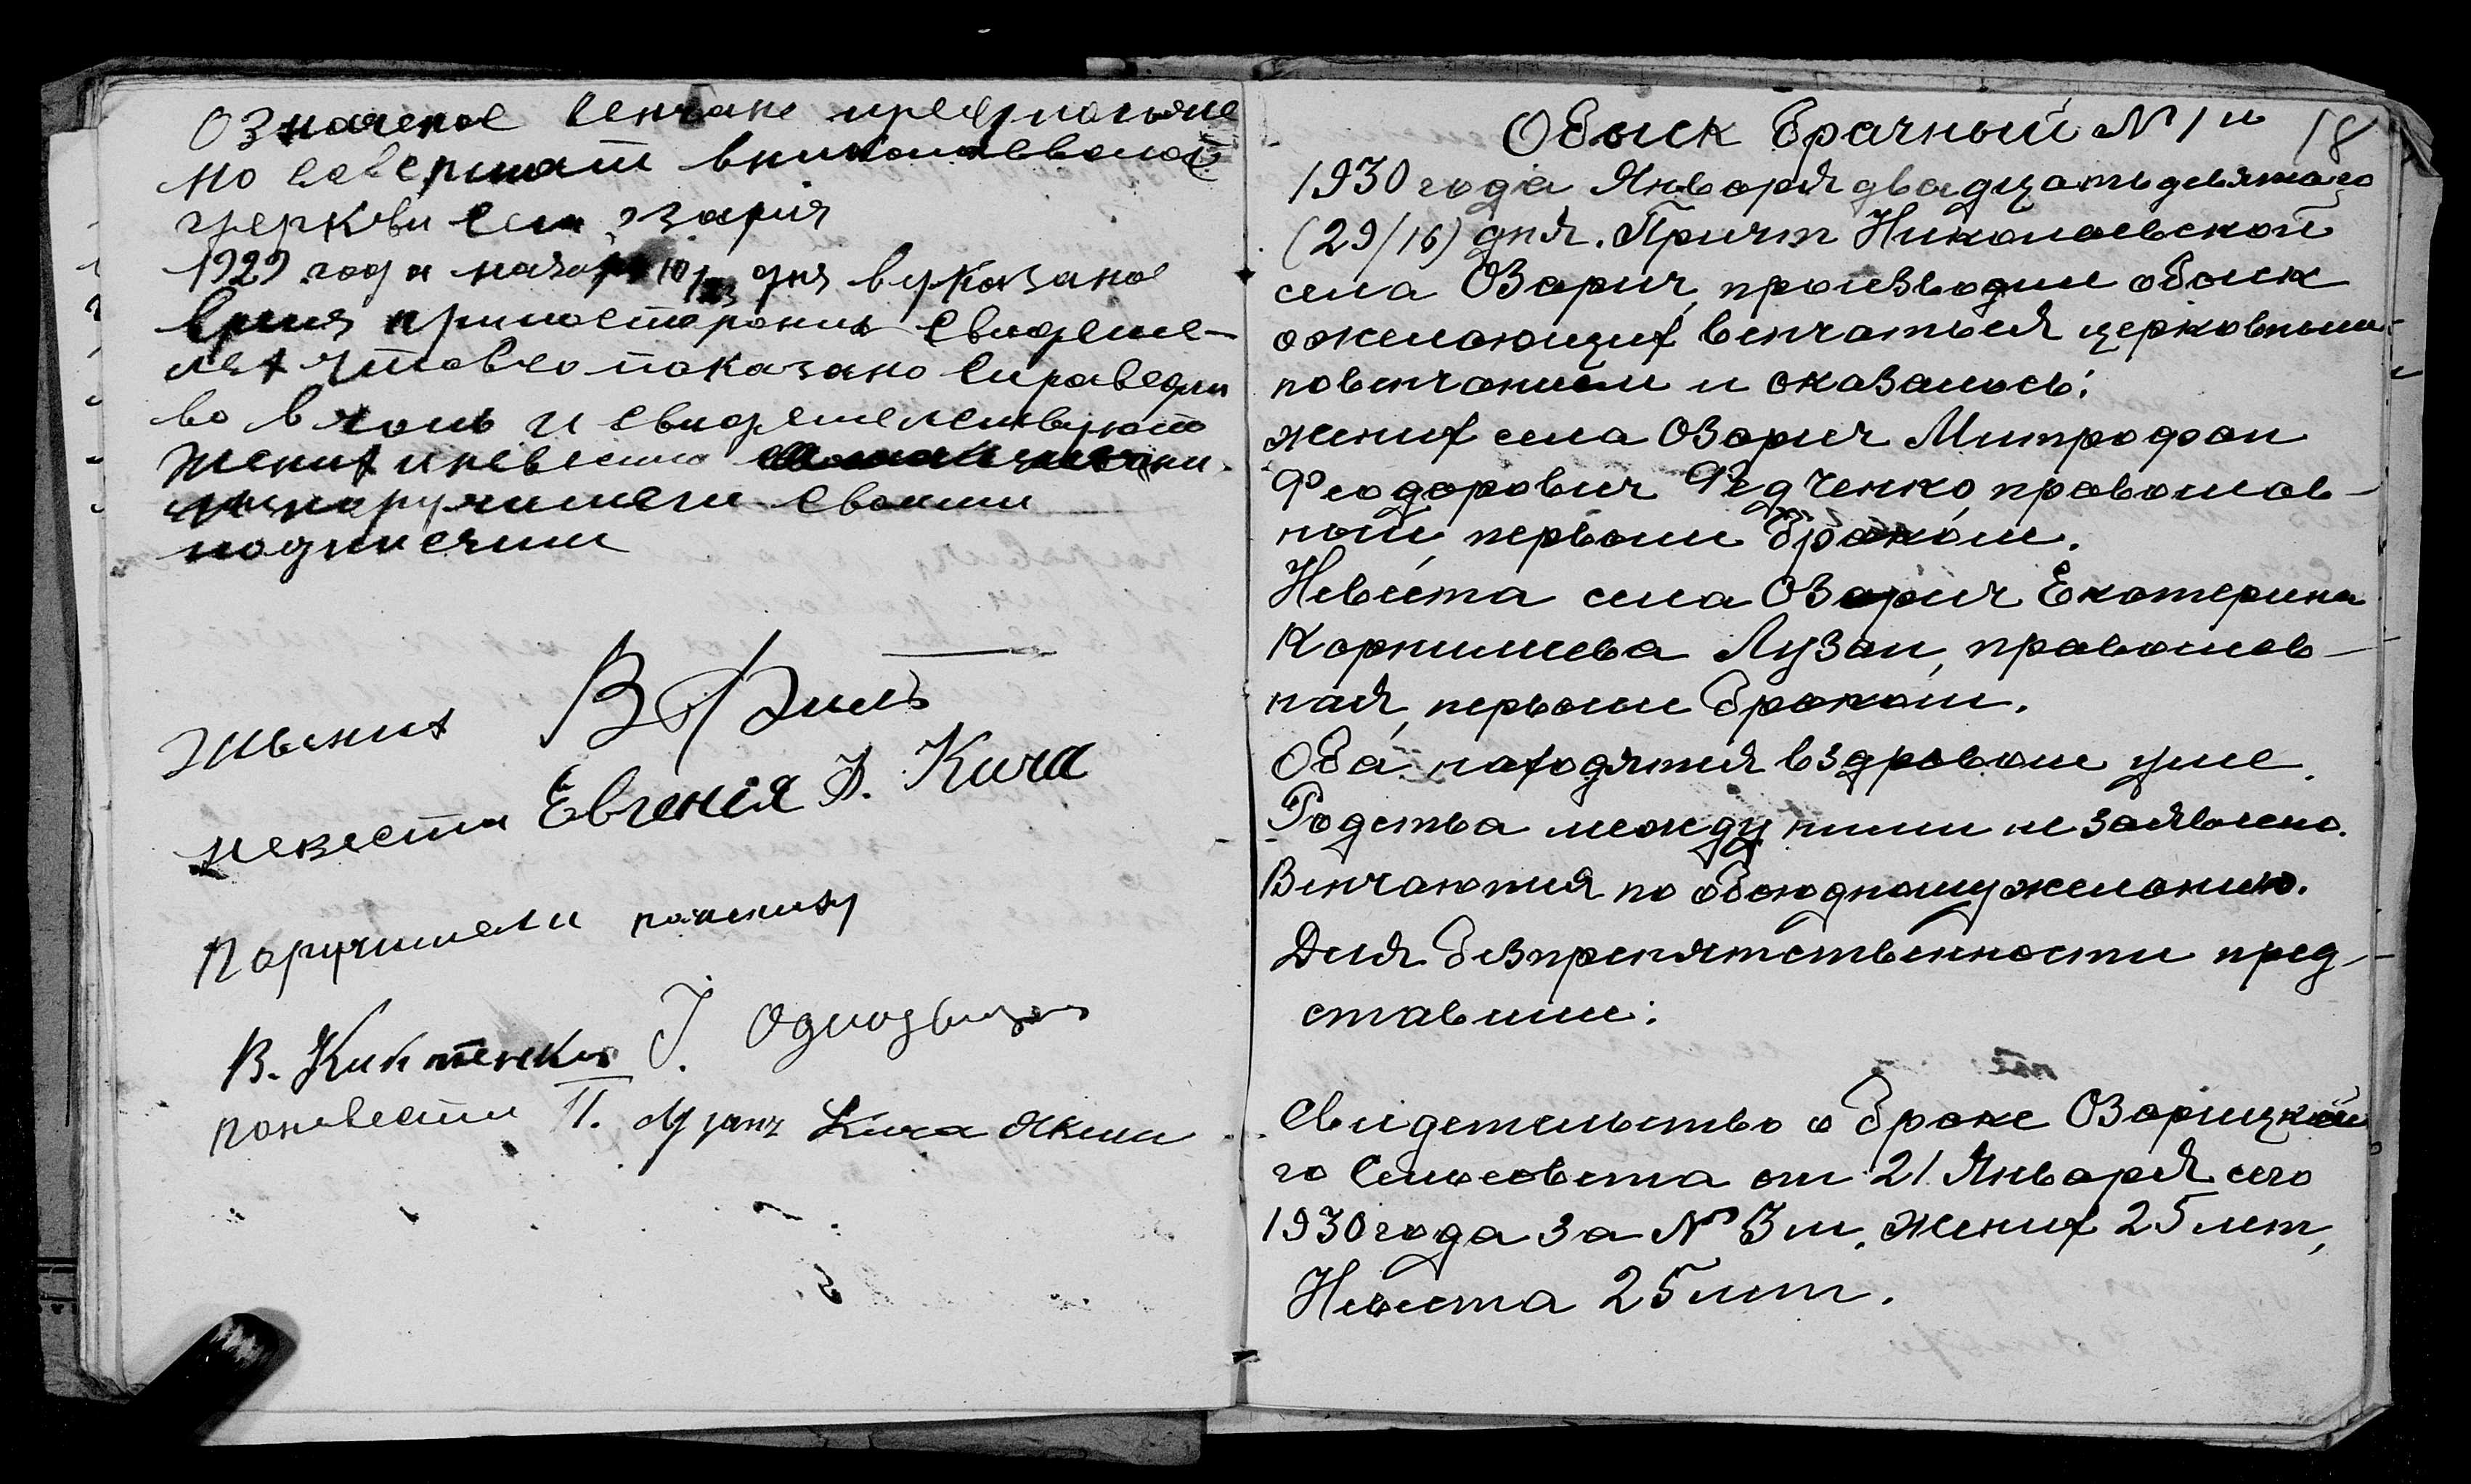 Означеное венчание предположе
но совершат вниколаевской
церкви села Озарич
1929 года ноября 10/23 дня вуказаное
время припостороних свидете-
лях что всё показано справедли
во в чом и свидетельствуют
жених и невеста
и поручители своими
подписями
жених В Ф Биль
невеста Евгенія Я. Кича
Поручители по жениху
В. Кийтенко І.
по невесте П. Лузан Кича Яким
Обыск брачный № 1й 18
1930 года Января двадцать девятаго
(29/16) дня. Причт Николаевской
села Озарич, производил обыск
о желающих венчаться церковным
повенчанием и оказалось:
жених села Озарич Митрофан
Феодорович Федченко православ-
ный, первым браком.
Невеста села Озарич Екатерина
Корнилиева Лузан, православ-
ная, первым браком.
Оба находятся в здровом уме.
Родства между ними не заявлено.
Венчаются по обоюдному желанию.
Для безпрепятственности пред-
ставили:
Свидетельство о браке Озарицкой
го Сельсовета от 21 Января сего
1930 года за № 3м. Жених 25 лет,
Невеста 25 лет.